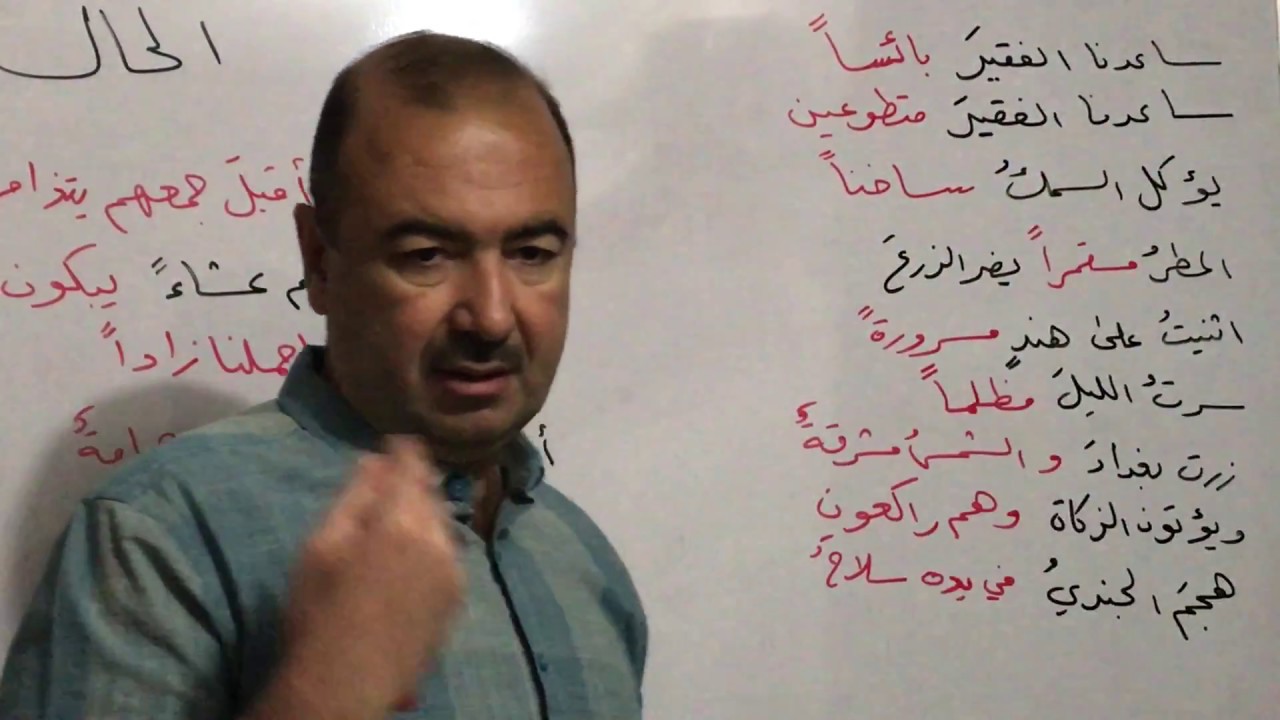 الحال
ساعدنا الفقيرَ بائساً
ساعدنا الفقيرَ متطوعين
يؤكل السمكُ ساخناً
المطرُ مستمراً يضر الزرعَ
اثنيتُ على هندٍ مسرورةً
سرتُ الليلَ مظلماً
زرت بغدادَ والشمسُ مشرقةٌ
ويؤتون الزكاة وهم راكعون
هجمَ الجنديُ في يده سلاحٌ
أقبلَ جمعهم
عشاءً يبكون
زاداً